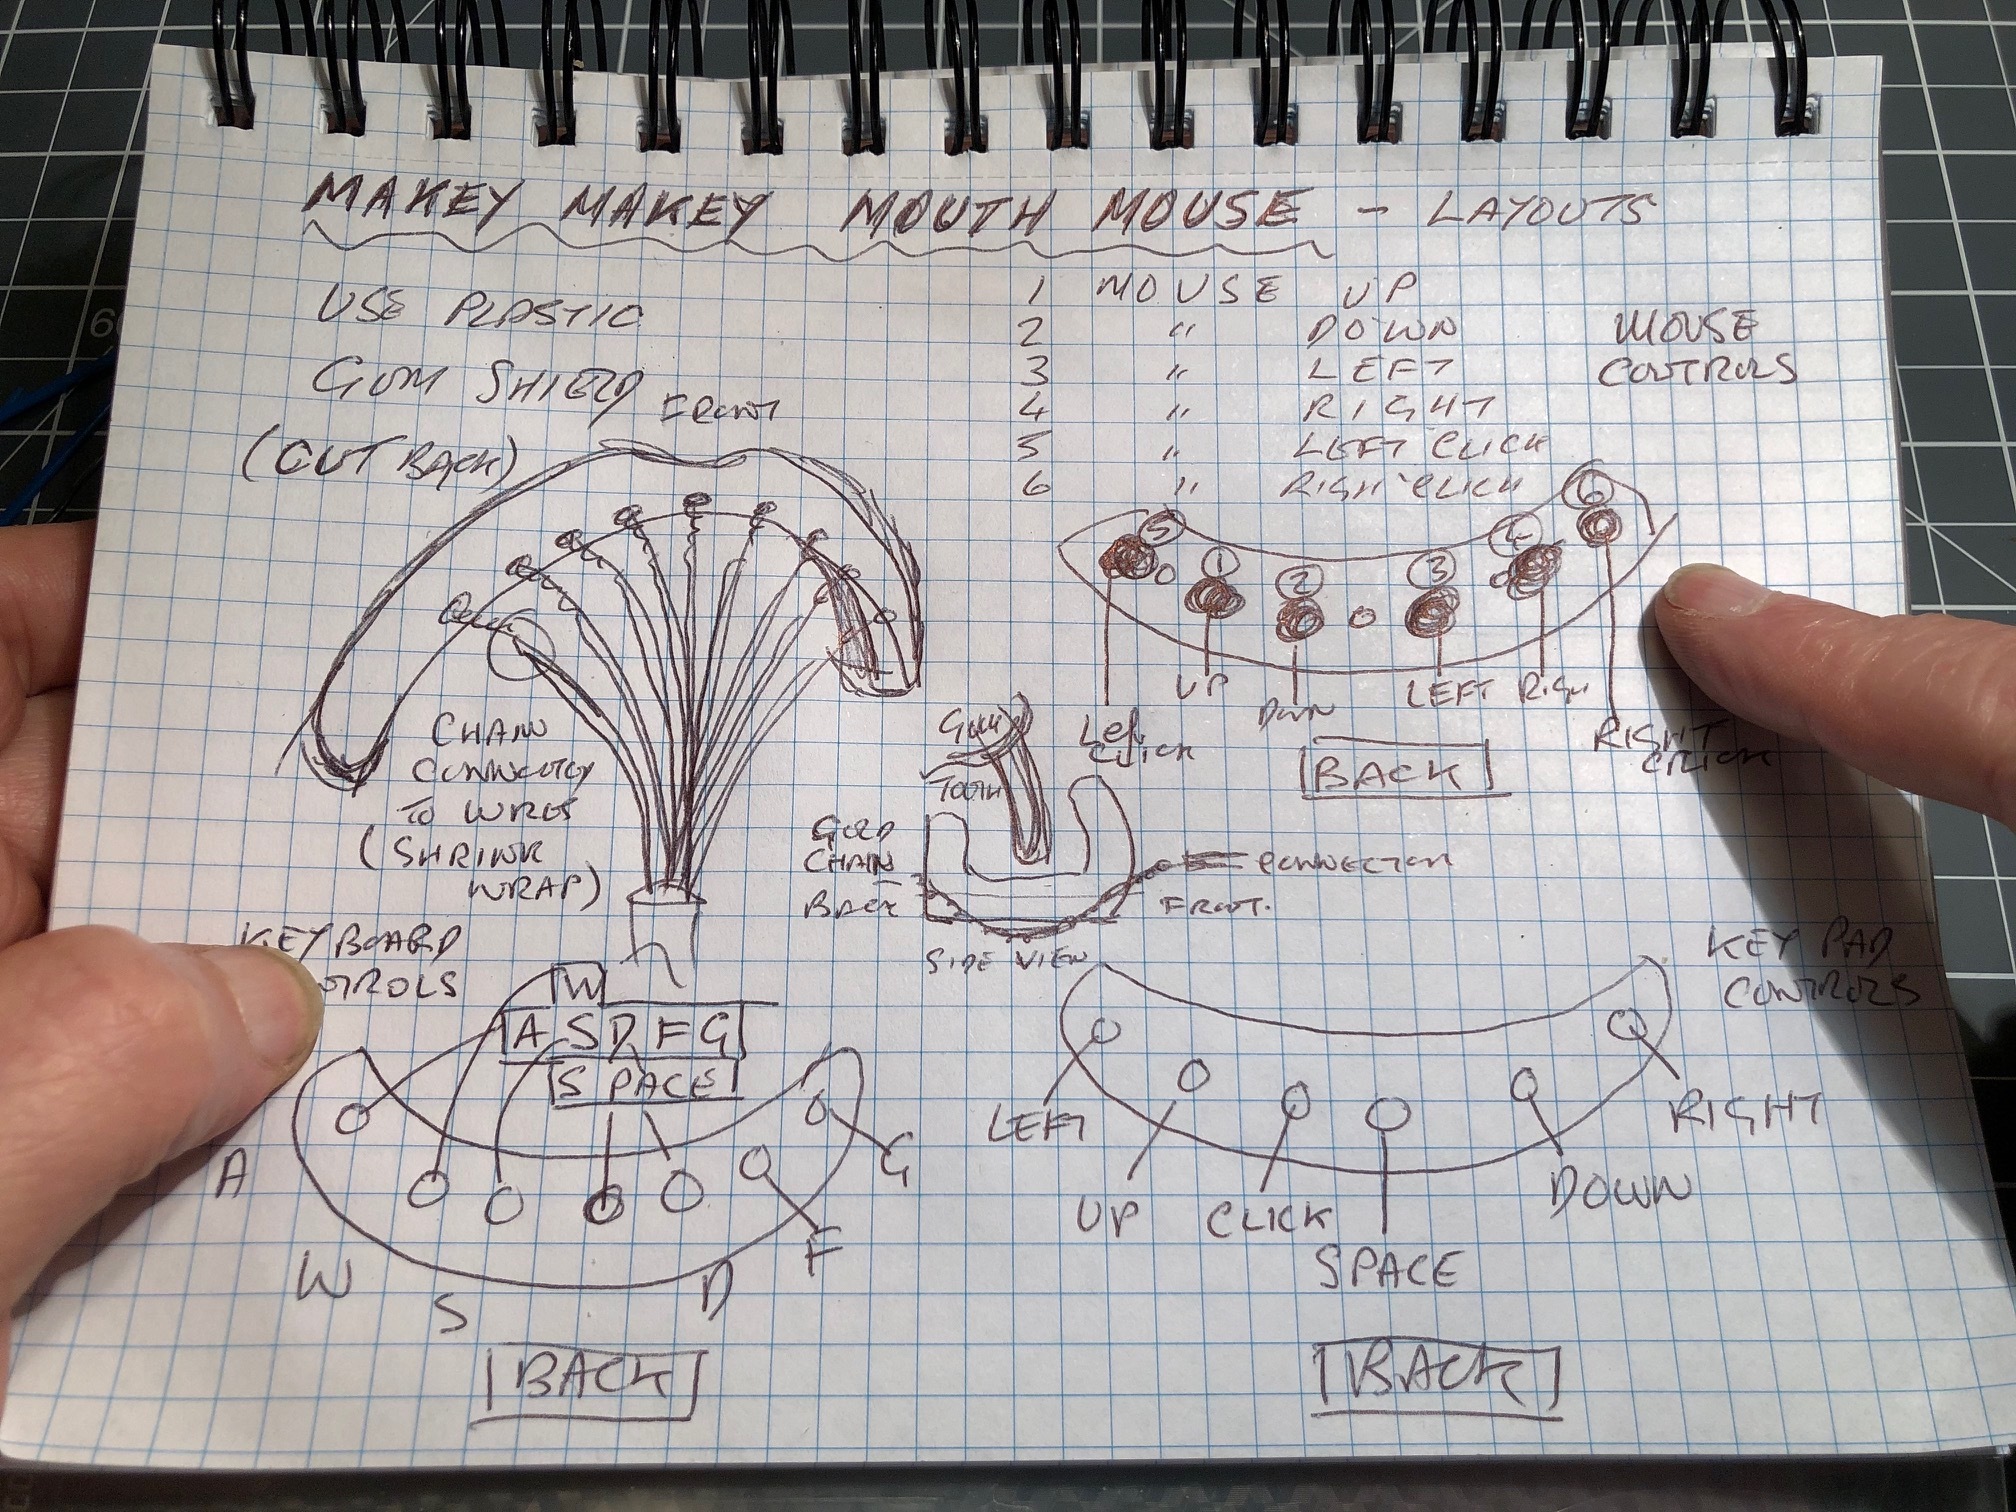 MAKEY MAKEY MOUTH MOUSE - LAYOUTS
USE PLASTIC
GUM SHIELD
(CUT BACK)
FRONT
1 MOUSE UP
2 " DOWN
3 " LEFT
4 " RIGHT
5 " LEFT CLICK
6 " RIGHT CLICK
MOUSE
CONTROLS
5
1
2
3
4
6
LEFT
CLICK
UP
DOWN
LEFT
RIGH
RIGHT
CLICK
BACK
CHAIN
TO WIRES
(SHRINK
WRAP)
GUM
TOOTH
GOLD
CHAIN
BACK
CONNECTION
FRONT.
SIDE VIEW
KEYBOARD
W
A S D F G
SPACE
A
W
S
D
F
G
BACK
KEY PAD
CONTROLS
LEFT
UP
CLICK
SPACE
DOWN
RIGHT
BACK